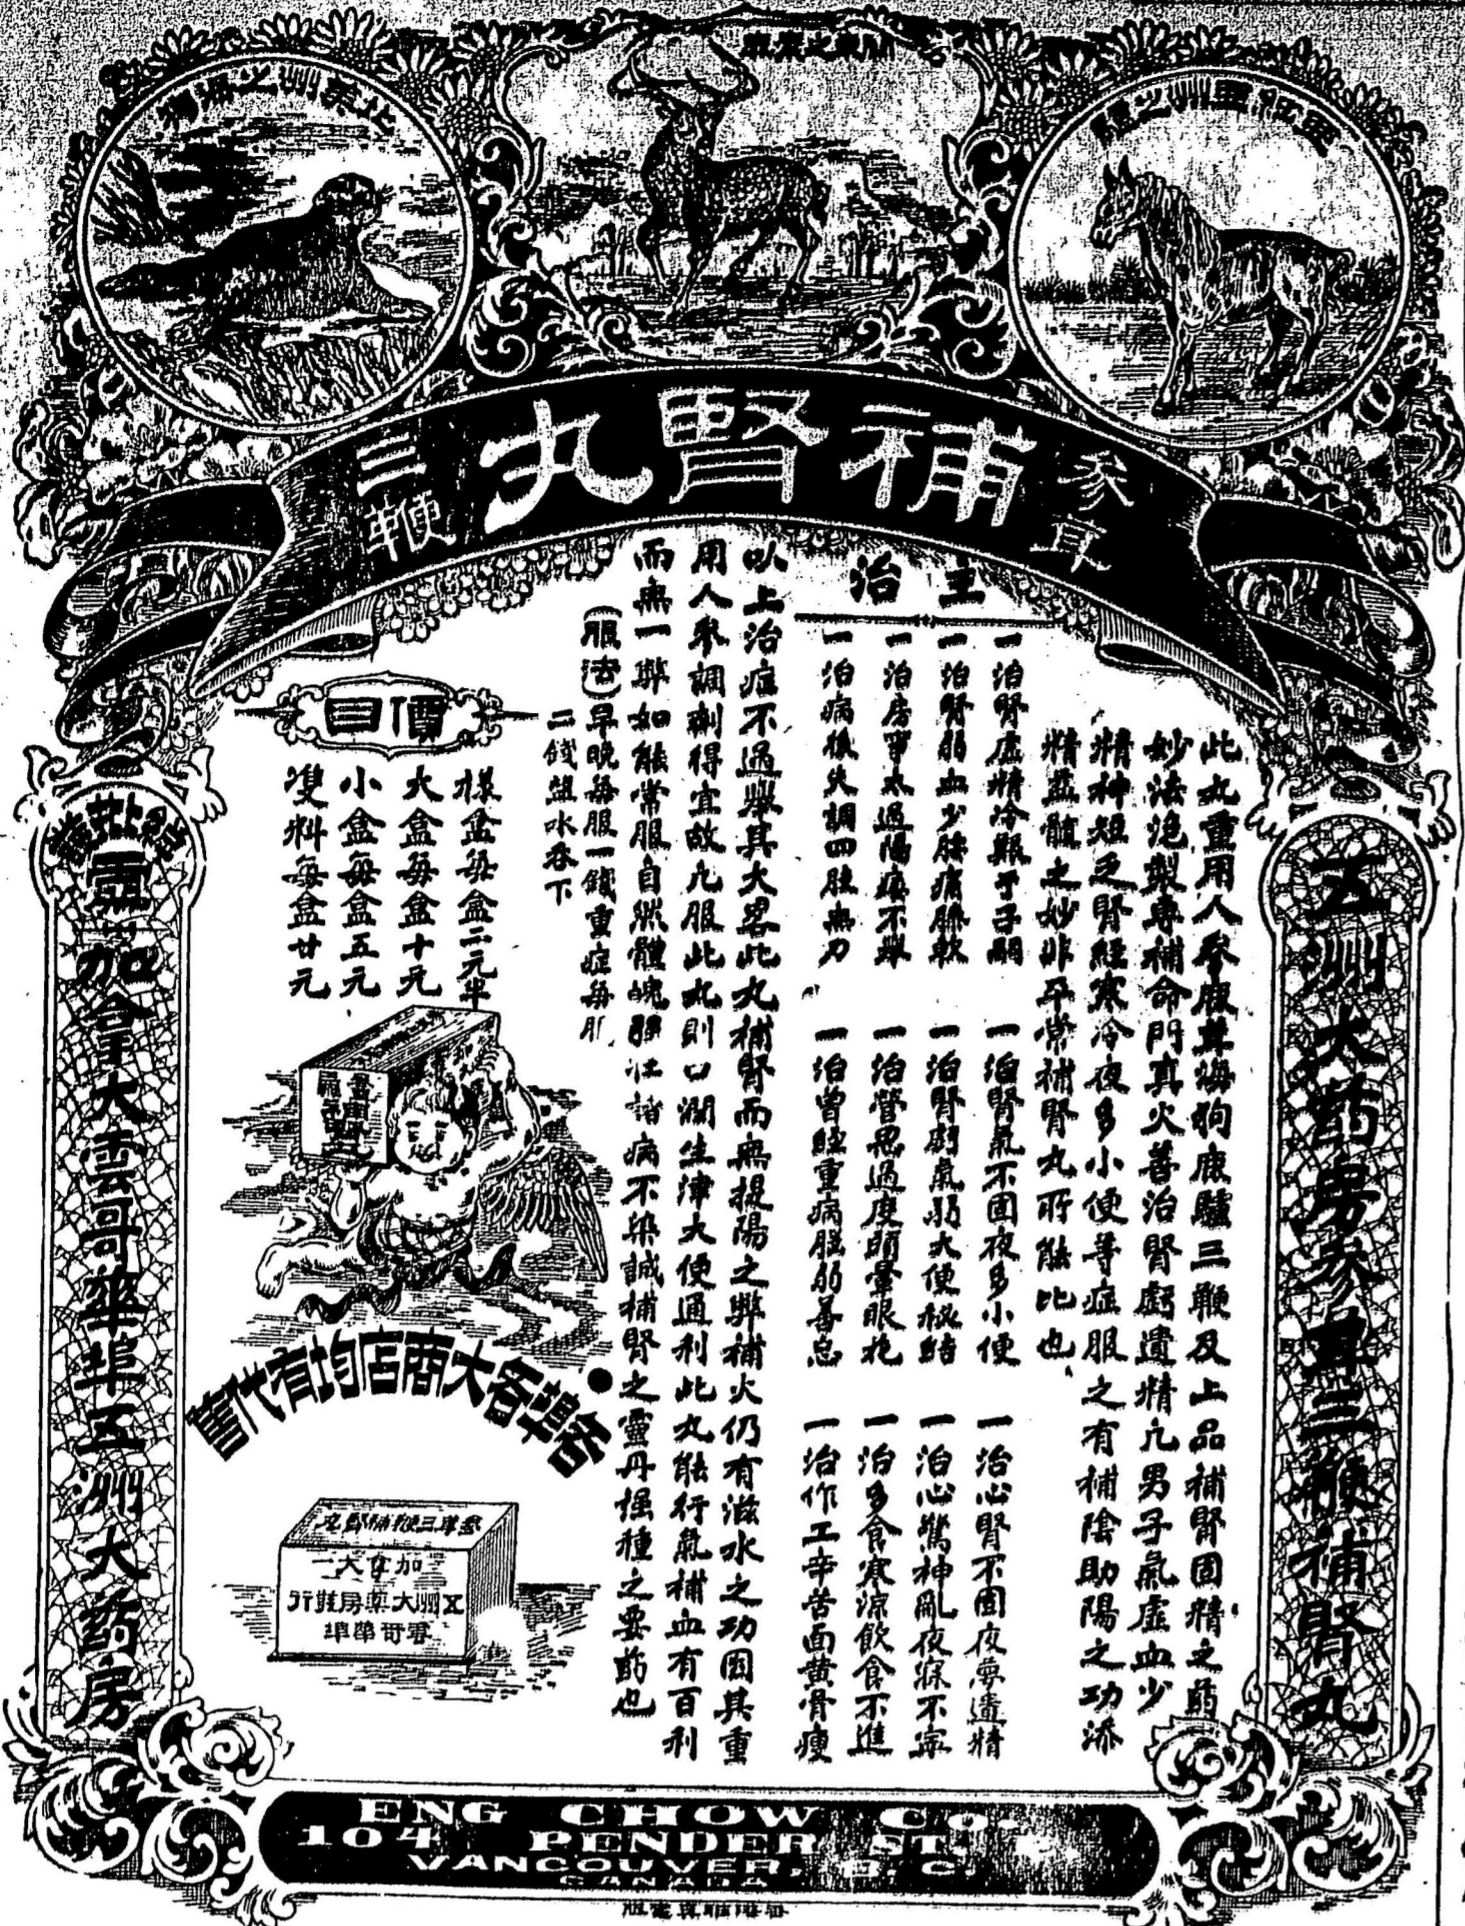 補腎丸
參茸
三鞭
五洲大葯房參茸三鞭補腎丸
此丸重用人參鹿茸海狗鹿驢三鞭及上品補腎固精之葯
妙法泡製專補命門真火善治腎虧遺精凢男子氣虛血少
精神短乏腎經寒冷夜多小便等症服之有補陰助陽之功添
精益髓之妙非平常補腎丸所能比也
主治
一治腎虛精冷艱于子嗣
一治腎氣不固夜多小便
一治心腎不固夜夢遺精
一治腎弱血少腰痛脚軟
一治腎虧氣弱大便秘結
一治心驚神亂夜寐不寧
一治房事太過陽痿不舉
一治營思過度頭暈眼花
一治多食寒涼飲食不進
一治病後失調四肢無力
一治曾經重病腦弱善忘
一治作工辛苦面黃骨瘦
以上治症不過舉其大畧此丸補腎而無提陽之弊補火仍有滋水之功因其重
用人參調劑得宜故凢服此丸則口潤生津大便通利此丸能行氣補血有百利
而無一弊如能常服自然體魄強壯諸病不染誠補腎之靈丹種之要葯也
(服法)早晚每服一錢重症每服
二錢鹽水吞下
價目
樣盒每盒二元半
大盒每盒十元
小盒每盒五元
雙料每盒廿元
各埠各大商店均有代售
參茸三鞭補腎丸
加拿大
五洲大藥房
雲哥華埠
加拿大雲哥華埠五洲大葯房
ENG CHOW Co.
104 PENDER ST.
VANCOUVER, B.C.
CANADA